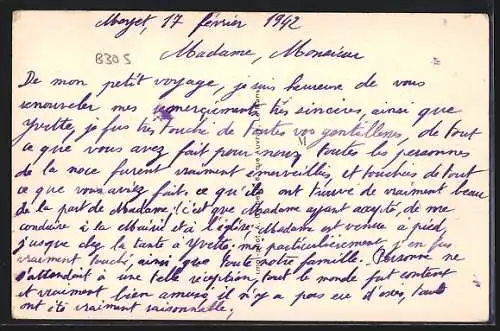 Mayet, 17 février 1942
B30 S
Madame, Monsieur
De mon petit voyage, je suis heureuse de vous
renouveler mes remerciements très sincères, ainsi que
Yvette, je fus très touché de toutes vos gentillesses, de tout
ce que vous avez fait pour nous, toutes les personnes
de la noce furent vraiment émerveillés, et touchés de tout
ce que vous aviez fait, ce qu'ils ont trouvé de vraiment beau
de la part de Madame, c'est que Madame ayant accepté, de me
conduire à la Mairie et à l'église, Madame est venue à pied,
jusque chez la tante à Yvette, moi particulièrement, j'en fus
vraiment touché, ainsi que toute notre famille. Personne ne
s'attendait à une telle réception, tout le monde fut content
et vraiment bien amusé, il n'y a pas eu d'excès, tous
ont été vraiment raisonnable.